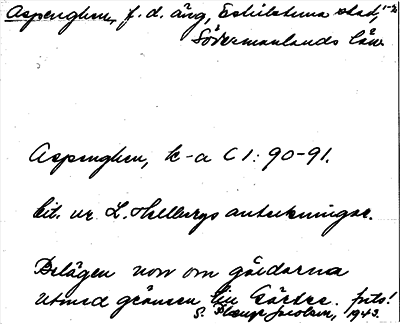 Aspenghen, f. d. äng, Eskilstuna stad, 1-2
Södermanlands län.
Aspenghen, k-a C 1: 90-91.
Cit. ur L. Hellbergs anteckningar.
Belägen norr om gårdarna
utmed gränsen till Gärtre. frts!
S. Jacobson, 1943.